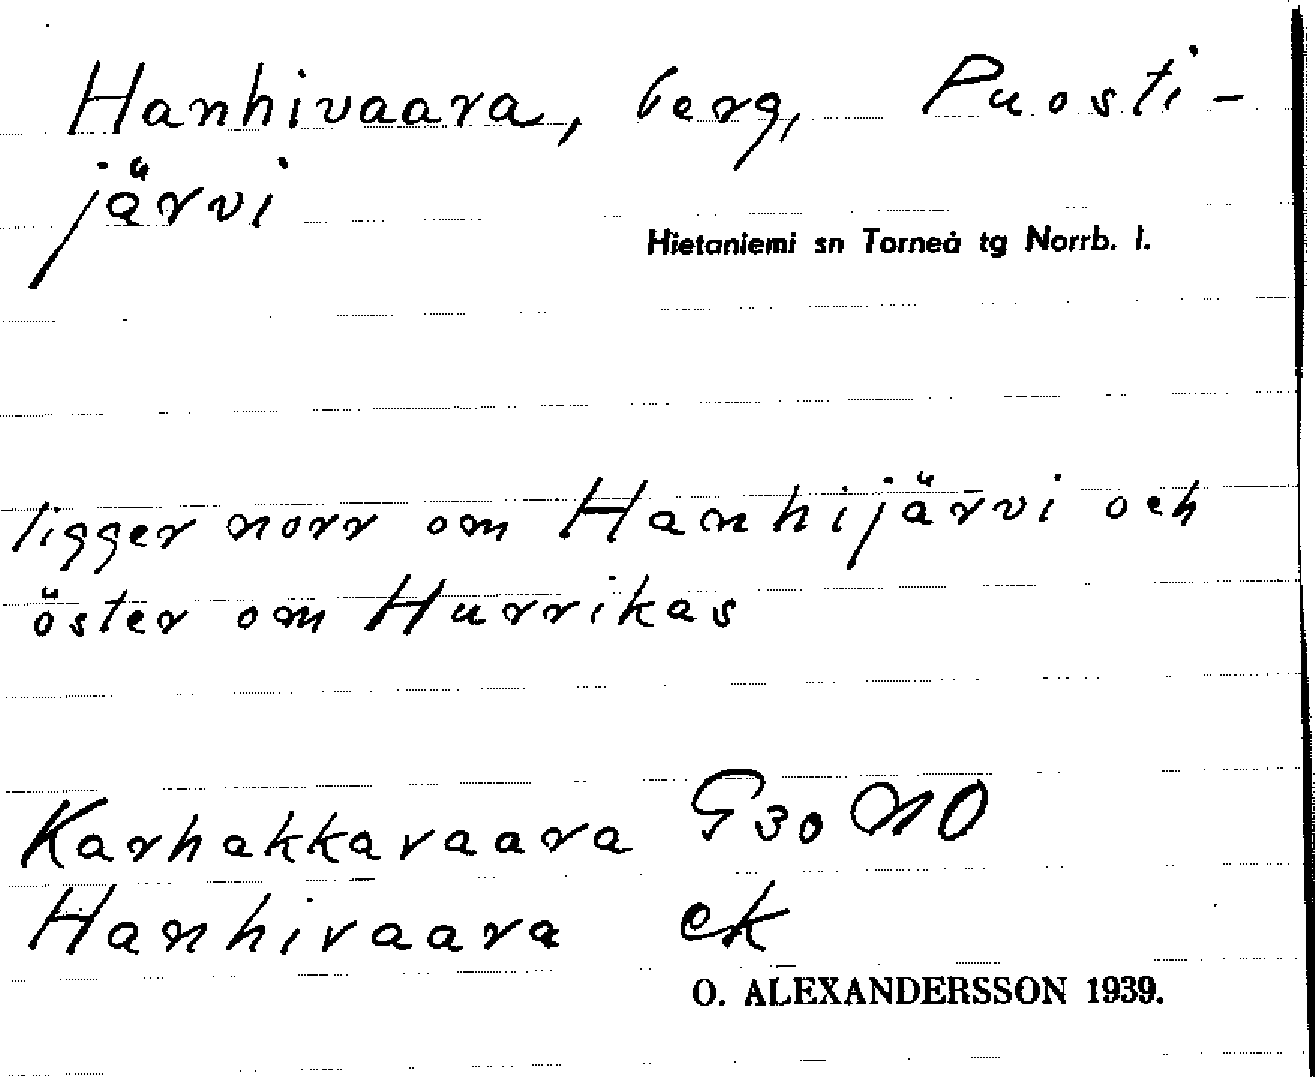 Hanhivaara, berg, Puosti-
järvi
Hietaniemi sn Torneå tg Norrb. l.
ligger norr om Hanhijärvi och
öster om Hurrikas
Karhakkavaara G 30 NO
Hanhivaara ek
O. ALEXANDERSSON 1939.